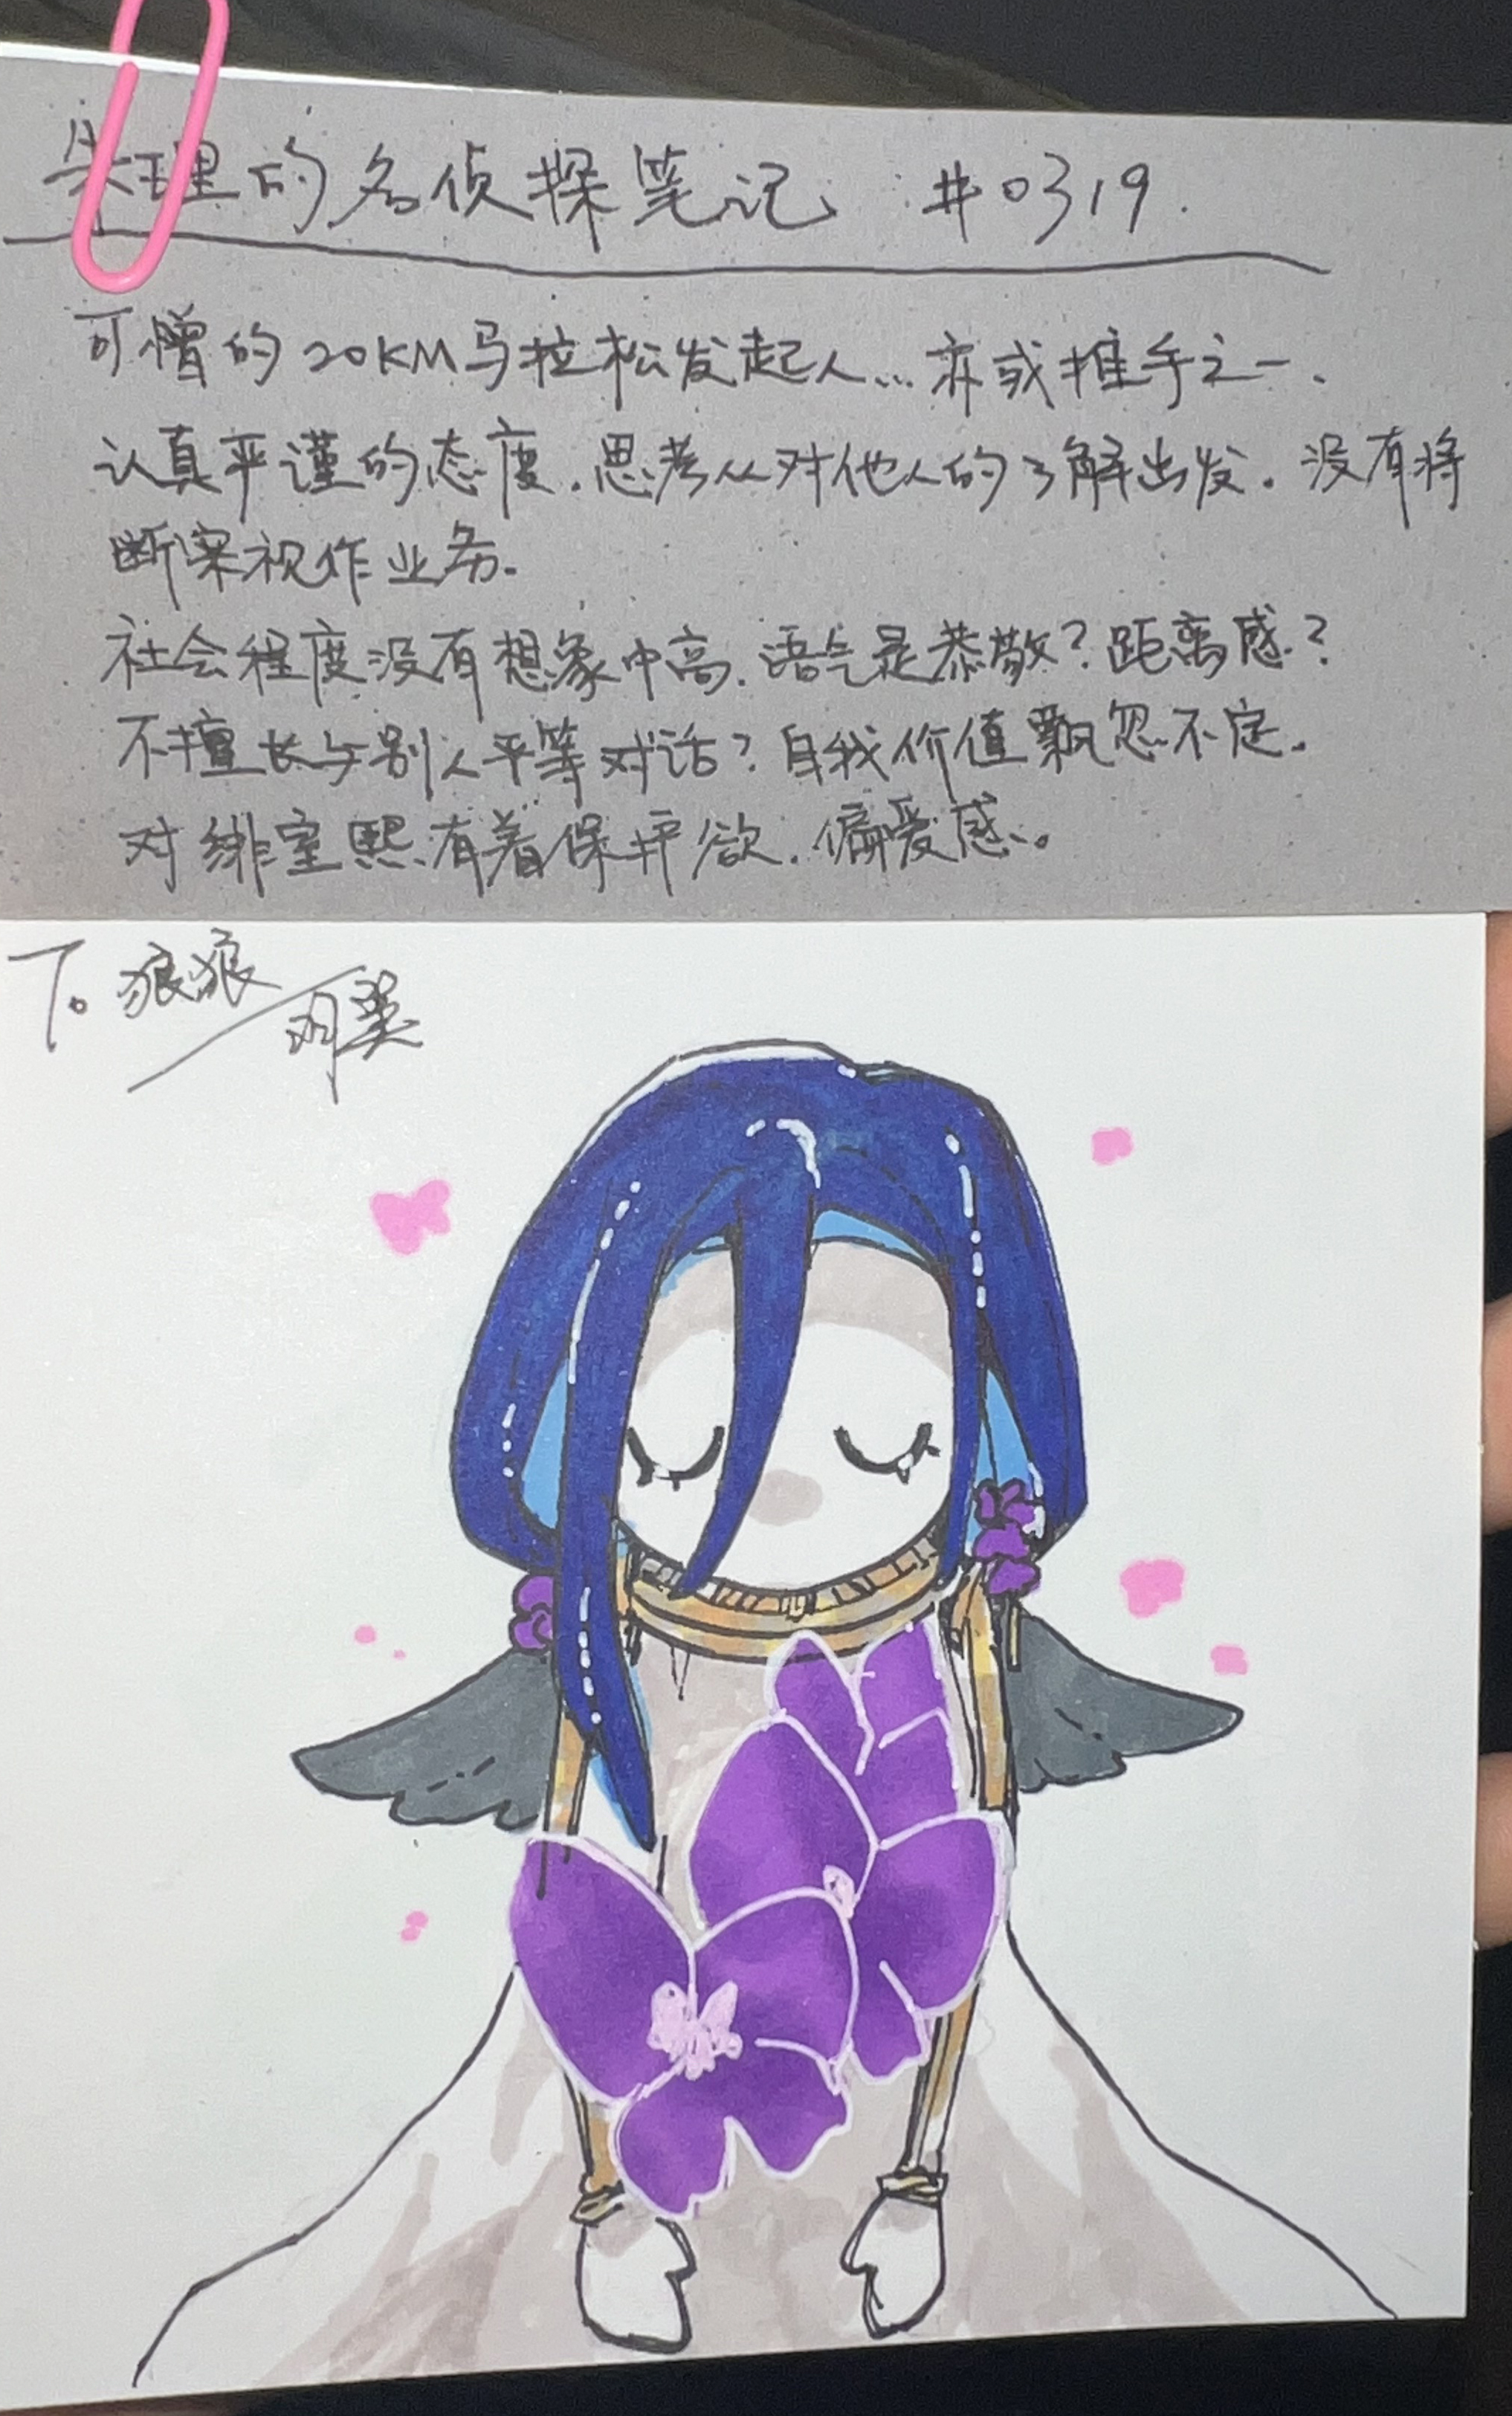 朱理的名侦探笔记 #0319.
可憎的20KM马拉松发起人...亦或推手之一.
认真严谨的态度.思考从对他人的了解出发.没有将
断案视作业务.
社会程度没有想象中高.语气是恭敬?距离感?
不擅长与别人平等对话?自我价值飘忽不定.
对绯室熙有着保护欲.偏爱感。
To 狼狼